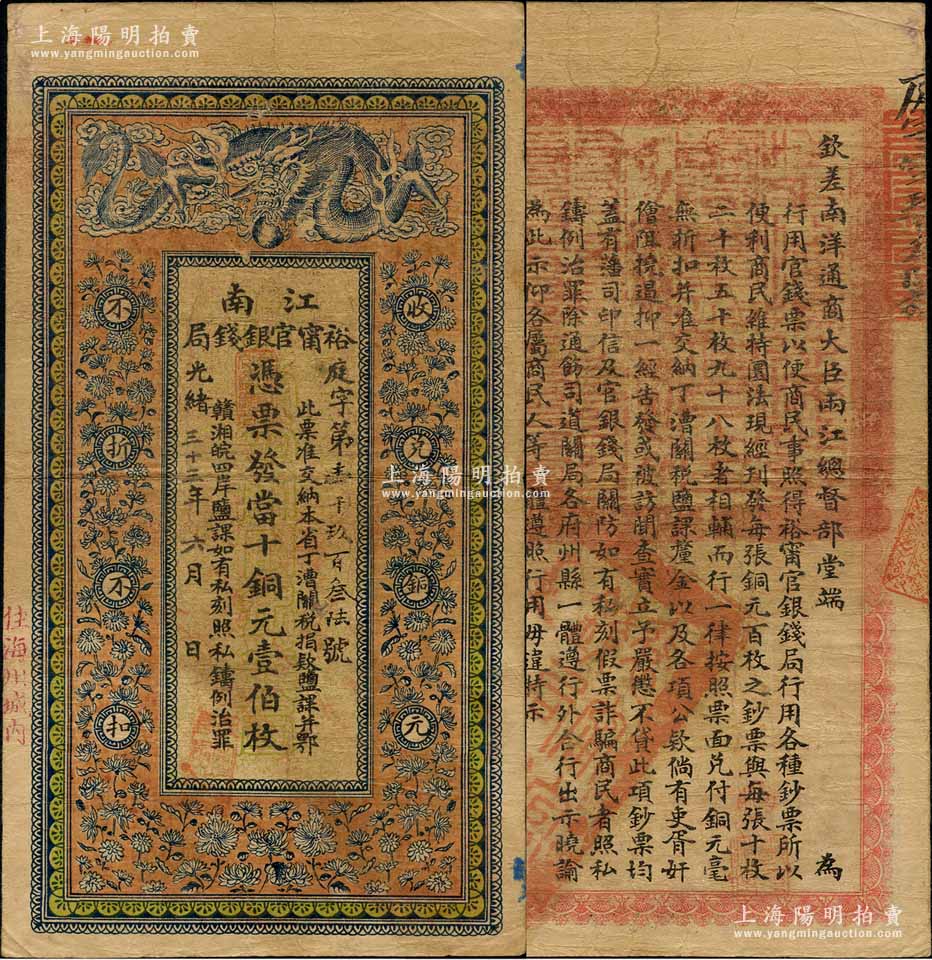 上海陽明拍賣
www.yangmingauction.com
江南
裕甯官銀錢局
庭字第壹千玖百叁陆號
此票准交納本省丁漕關稅捐欵鹽課并鄂
憑票發當十銅元壹伯枚
贛湘皖四岸鹽課如有私刻照私鑄例治罪
光緒三十三年六月 日
收兌銅元
不折不扣
住海州城內
欽差南洋通商大臣兩江總督部堂端 為
行用官錢票以便商民事照得裕甯官銀錢局行用各種鈔票所以
便利商民維持圜法現經刊發每張銅元百枚之鈔票與每張十枚
二十枚五十枚九十八枚者相輔而行一律按照票面兌付銅元毫
無折扣并准交納丁漕關稅鹽課釐金以及各項公欵倘有吏胥奸
儈阻撓遏抑一經告發或被訪聞查實立予嚴懲不貸此項鈔票均
蓋有藩司印信及官銀錢局關防如有私刻假票詐騙商民者照私
鑄例治罪除通飭司道關局各府州縣一體遵行外合行出示曉諭
為此示仰各屬商民人等一體遵照行用毋違特示
上海陽明拍賣
www.yangmingauction.com
上海陽明拍賣
www.yangmingauction.com